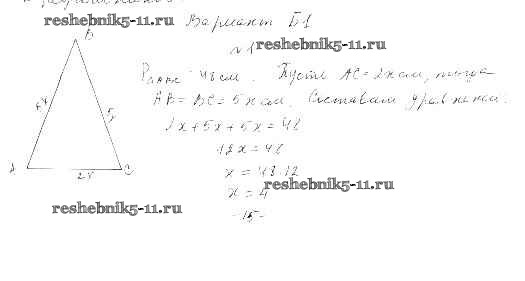 reshebnik5-11.ru Вариант Б1
№1 reshebnik5-11.ru
B
P ABC = 48 см. Пусть AC = 2x см, тогда
AB = BC = 5x см. Составим уравнение:
2x + 5x + 5x = 48
12x = 48
x = 48:12
reshebnik5-11.ru
x = 4
5x
A
2x
C
reshebnik5-11.ru
-15-